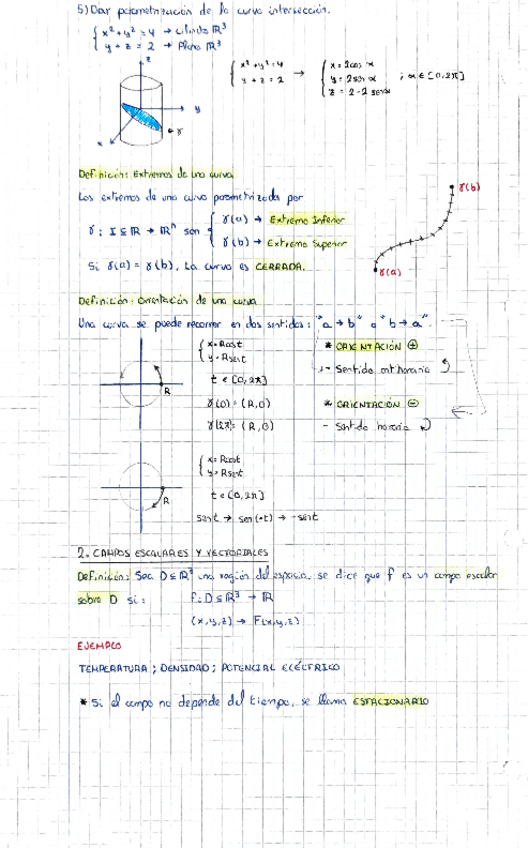 5) Dar parametrización de la curva intersección.
{ x² + y² = 4 → cilindro ℝ³
y + z = 2 → Plano ℝ³
{ x² + y² = 4
y + z = 2 → { x = 2cos α
y = 2sen α ; α ∈ [0, 2π]
z = 2 - 2 sen α
z
y
x
γ
Definición: Extremos de una curva
Los extremos de una curva parametrizada por
γ : I ⊆ ℝ → ℝⁿ son { γ(a) → Extremo Inferior
γ(b) → Extremo Superior
Si γ(a) = γ(b), La curva es CERRADA.
γ(b)
γ(a)
Definición: Orientación de una curva
Una curva se puede recorrer en dos sentidos: "a → b" o "b → a".
{ x = Rcost
y = Rsent
t ∈ [0, 2π]
γ(0) = (R, 0)
γ(2π) = (R, 0)
R
* ORIENTACIÓN ⊕
- Sentido antihorario
* ORIENTACIÓN ⊖
- Sentido horario
{ x = Rcost
y = Rsent
t ∈ [0, 2π]
sent → sen(-t) → -sent
R
2. CAMPOS ESCALARES Y VECTORIALES
Definición: Sea D ⊆ ℝ³ una región del espacio, se dice que f es un campo escalar
sobre D si: f: D ⊆ ℝ³ → ℝ
(x, y, z) → F(x, y, z)
EJEMPLO
TEMPERATURA ; DENSIDAD ; POTENCIAL ELÉCTRICO
* Si el campo no depende del tiempo, se llama ESTACIONARIO